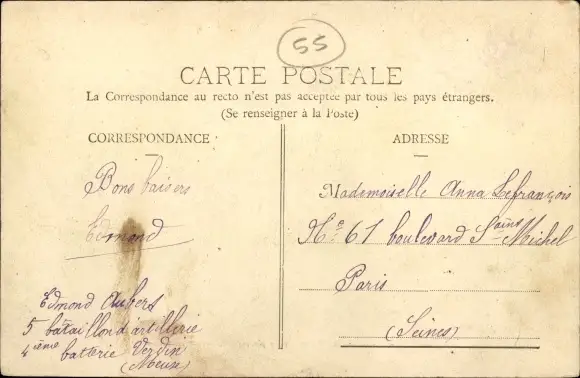 55
CARTE POSTALE
La Correspondance au recto n'est pas acceptée par tous les pays étrangers.
(Se renseigner à la Poste)
CORRESPONDANCE
ADRESSE
Bons baisers
Edmond
Edmond Aubert
5 bataillon d'artillerie
4ième batterie Verdin
(Meuse)
Mademoiselle Anna Lefrançois
61 boulevard Saint Michel
Paris
(Seine)